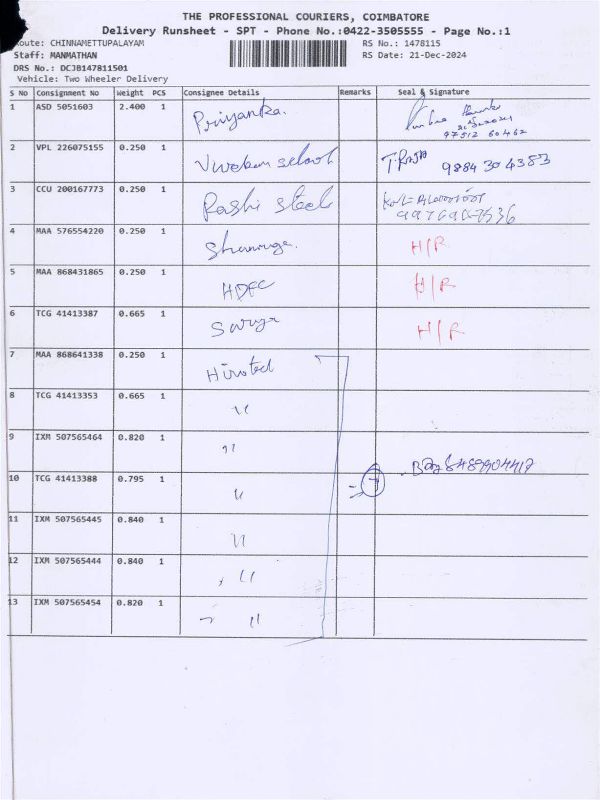 THE PROFESSIONAL COURIERS, COIMBATORE
Delivery Runsheet - SPT - Phone No.:0422-3505555 - Page No.:1
Route: CHINNAMETTUPALAYAM RS No.: 1478115
Staff: MANMATHAN RS Date: 21-Dec-2024
DRS No.: DCJB147811501
Vehicle: Two Wheeler Delivery
S No Consignment No Weight PCS Consignee Details Remarks Seal & Signature
1 ASD 5051603 2.400 1 Priyanka.
97512 60462
2 VPL 226075155 0.250 1 Vivekam school 9884304383
3 CCU 200167773 0.250 1 Rashi steel
4 MAA 576554220 0.250 1 H/R
5 MAA 868431865 0.250 1 HDFC H/R
6 TCG 41413387 0.665 1 Surya H/R
7 MAA 868641338 0.250 1 Hirotec
8 TCG 41413353 0.665 1 "
9 IXM 507565464 0.820 1 "
10 TCG 41413388 0.795 1 " 7
11 IXM 507565445 0.840 1 "
12 IXM 507565444 0.840 1 "
13 IXM 507565454 0.820 1 "